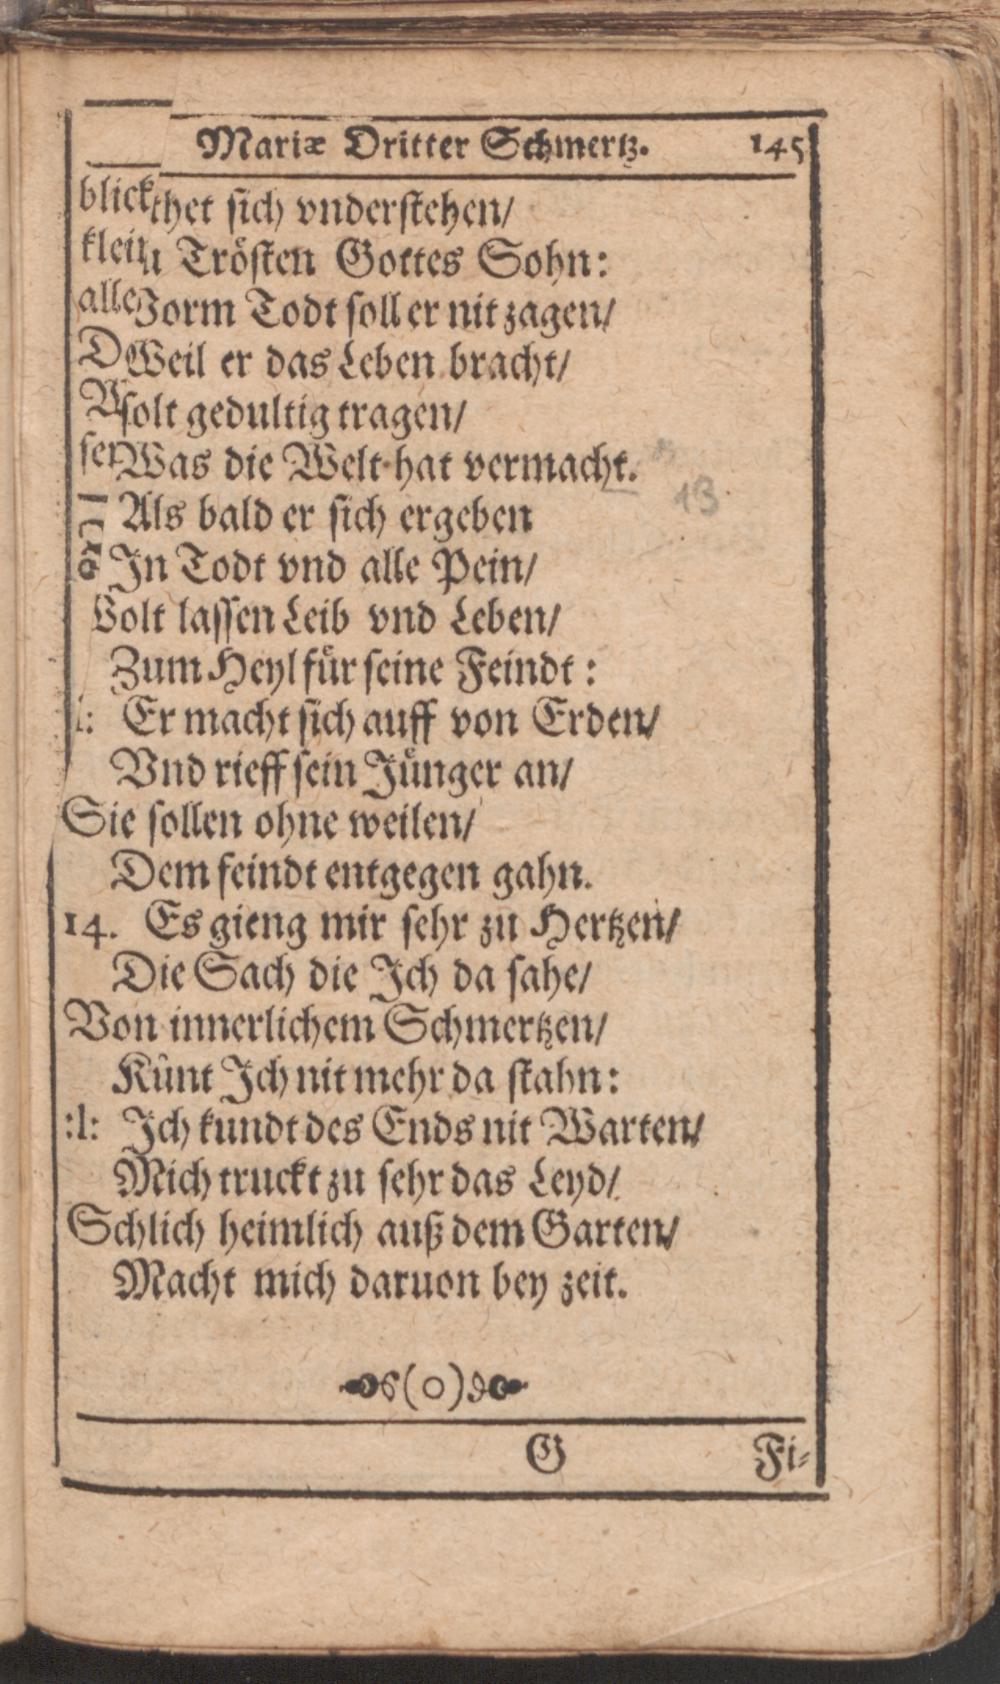 Mariæ Dritter Schmertz. 145
blick thet sich vnderstehen/
klein u Trösten Gottes Sohn:
alle Vorm Todt soll er nit zagen/
D Weil er das Leben bracht/
solt gedultig tragen/
ser Was die Welt hat vermacht.
13
Als bald er sich ergeben
In Todt vnd alle Pein/
Wolt lassen Leib vnd Leben/
Zum Heyl für seine Feindt:
l: Er macht sich auff von Erden/
Vnd rieff sein Jünger an/
Sie sollen ohne weilen/
Dem feindt entgegen gahn.
14. Es gieng mir sehr zu Hertzen/
Die Sach die Ich da sahe/
Von innerlichem Schmertzen/
Künt Ich nit mehr da stahn:
:l: Ich kundt des Ends nit Warten/
Mich truckt zu sehr das Leyd/
Schlich heimlich auß dem Garten/
Macht mich daruon bey zeit.
(o)
G Fi-